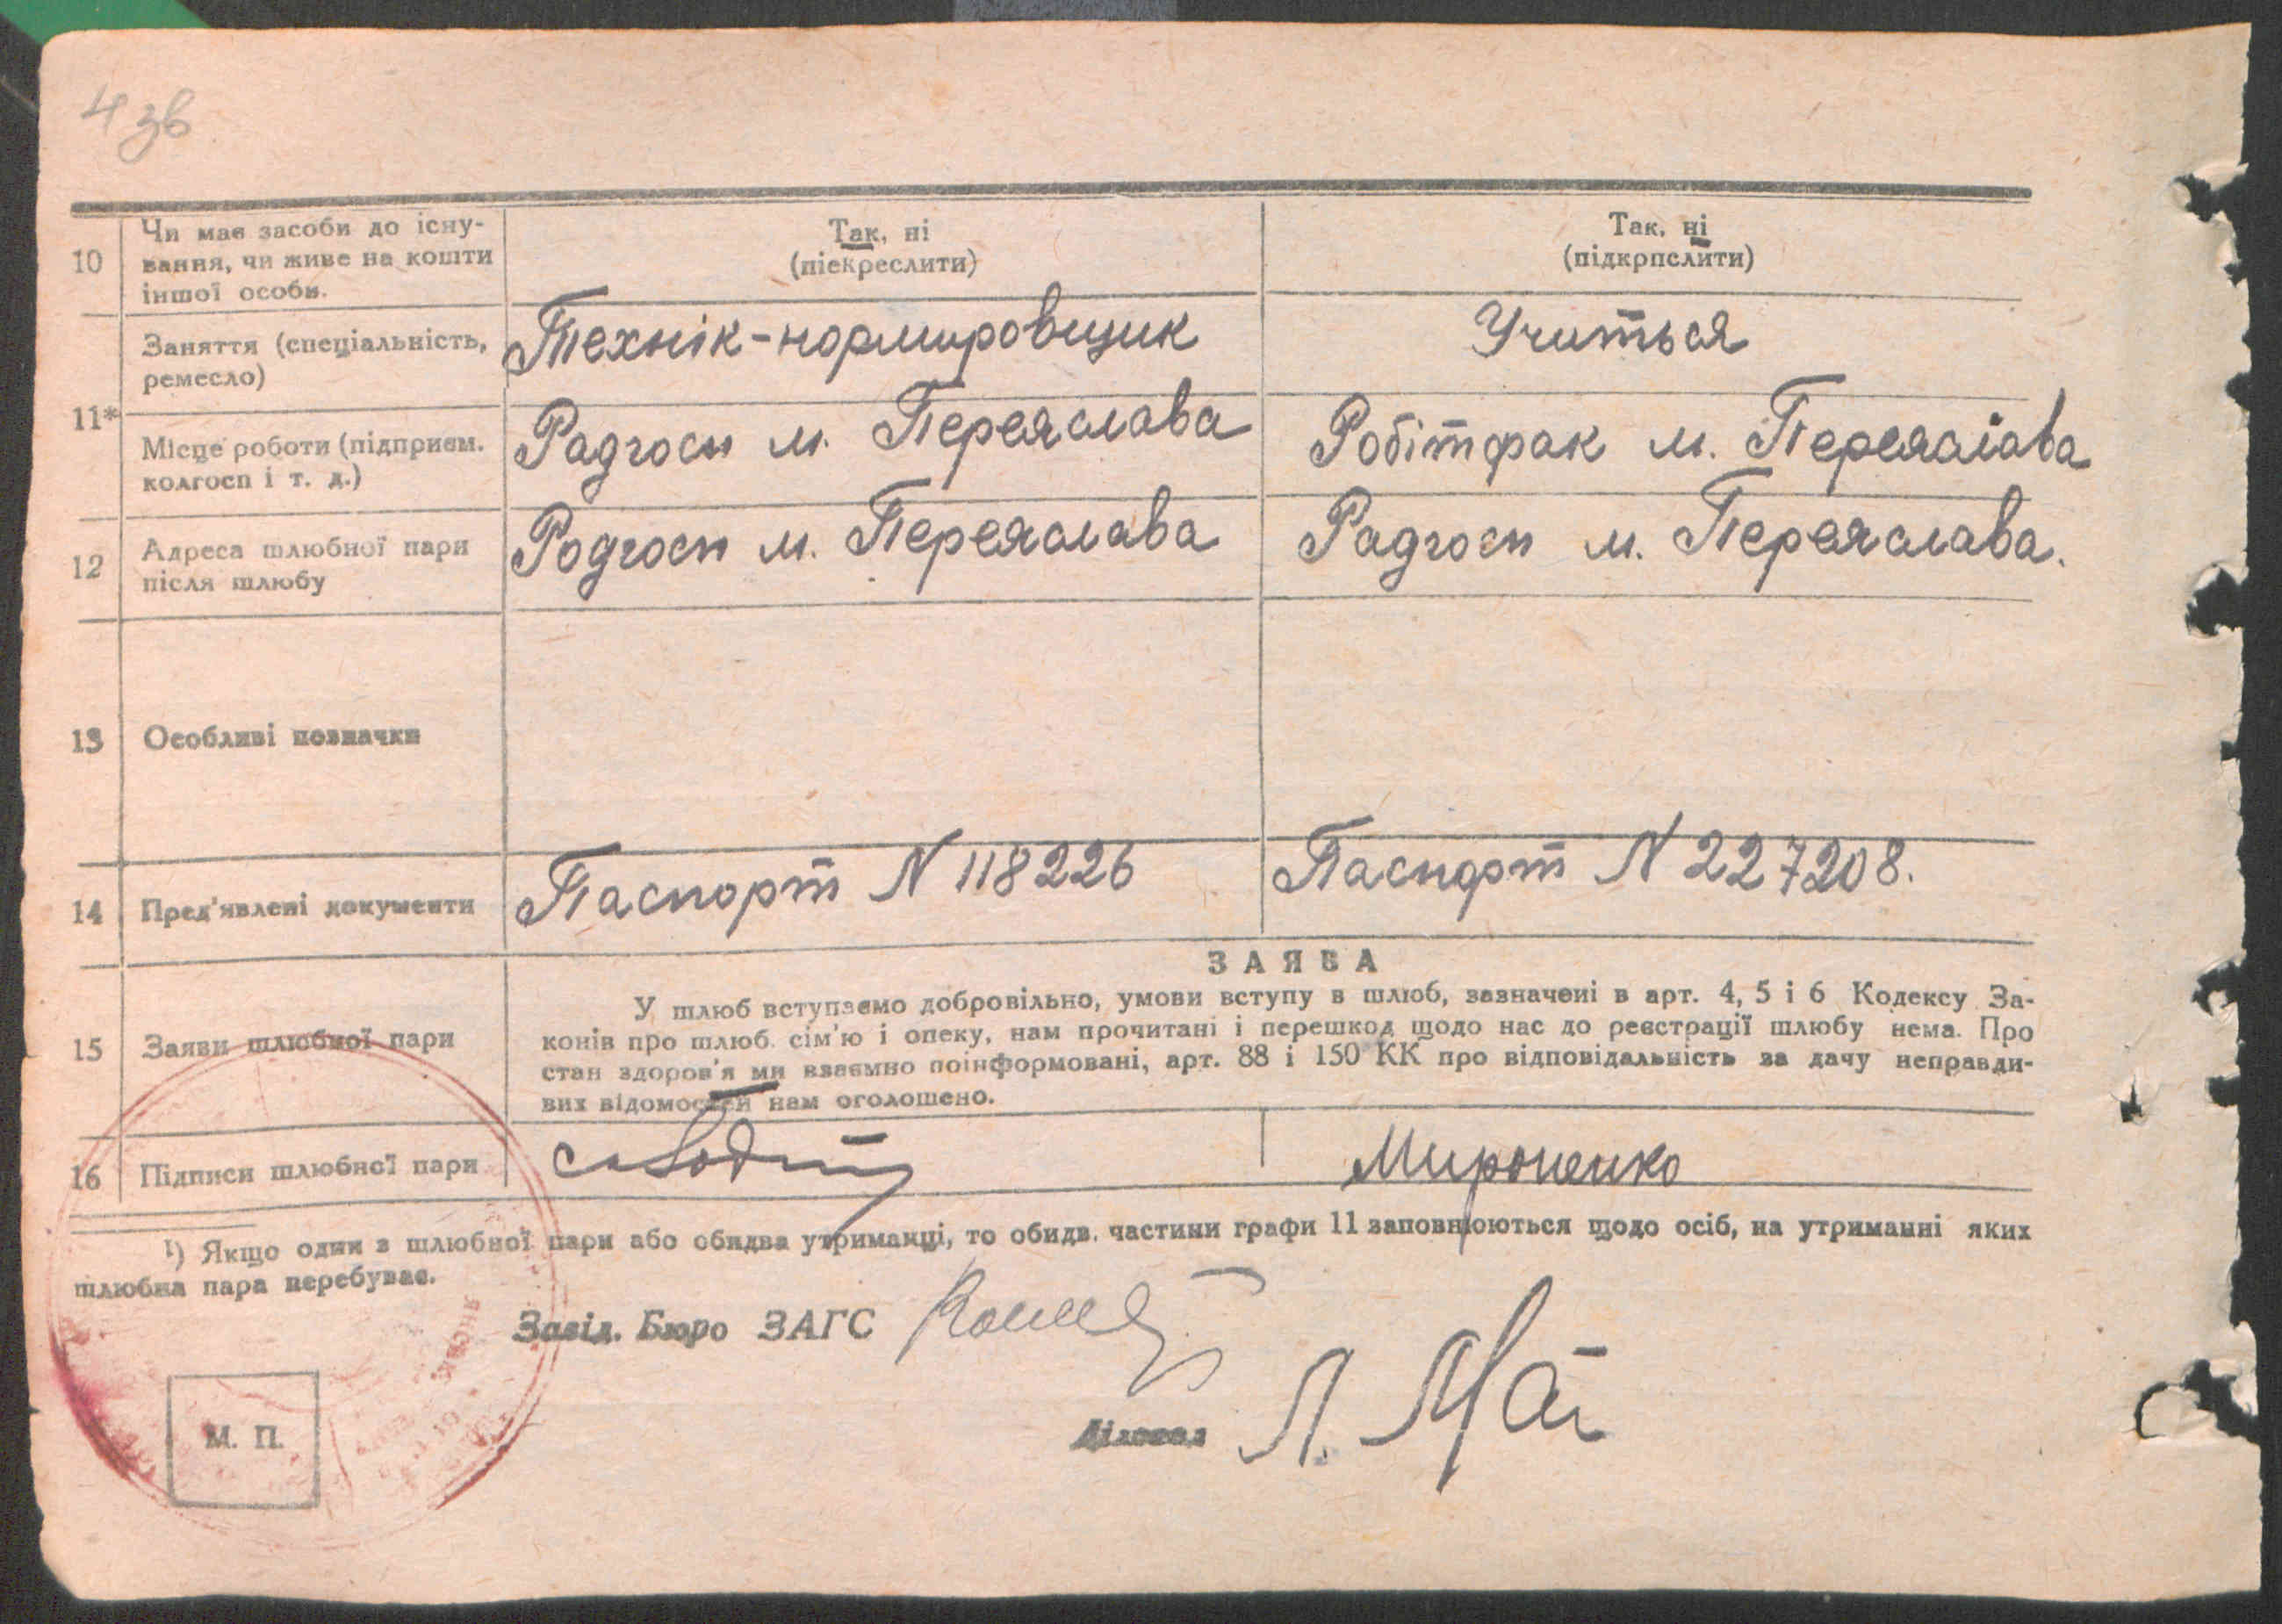 4 зв
10
Чи має засоби до існу-
вання, чи живе на кошти
іншої особи.
Так, ні
(піекреслити)
Так, ні
(підкрпслити)
11*
Заняття (спеціальність,
ремесло)
Технік-нормировщик
Учиться
Місце роботи (підприєм.
колгосп і т. д.)
Радгосп м. Переяслава
Робітфак м. Переяслава
12
Адреса шлюбної пари
після шлюбу
Родгосп м. Переяслава
Радгосп м. Переяслава.
13
Особливі позначки
14
Пред'явлені документи
Паспорт N 118226
Паспорт N 227208.
15
Заяви шлюбної пари
ЗАЯВА
У шлюб вступаємо добровільно, умови вступу в шлюб, зазначені в арт. 4, 5 і 6 Кодексу За-
конів про шлюб. сім'ю і опеку, нам прочитані і перешкод щодо нас до реєстрації шлюбу нема. Про
стан здоров'я ми взаємно поінформовані, арт. 88 і 150 КК про відповідальність за дачу неправди-
вих відомостей нам оголошено.
16
Підписи шлюбної пари
Мироненко
¹) Якщо один з шлюбної пари або обидва утриманці, то обидв. частини графи 11 заповнюються щодо осіб, на утриманні яких
шлюбна пара перебуває.
Завід. Бюро ЗАГС
Діловод
М. П.